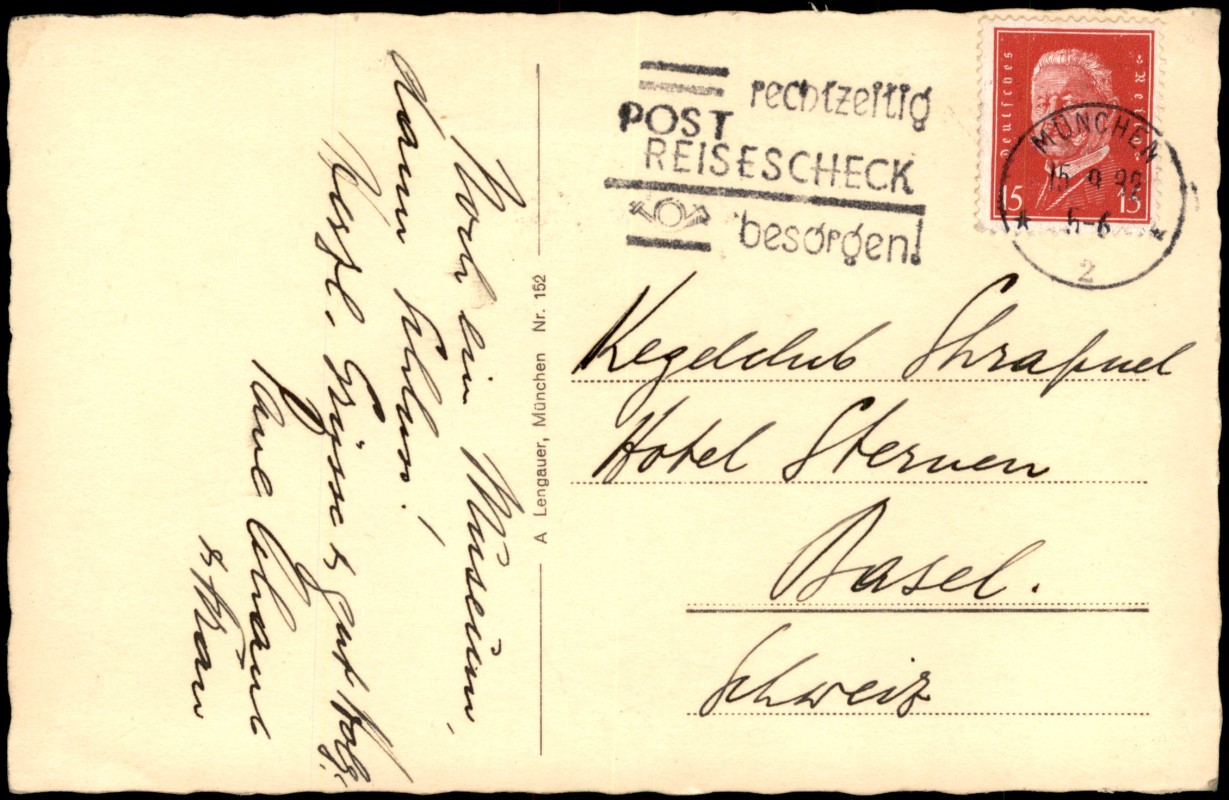 Noch ein Museum,
dann Schluss!
Herzl. Grüsse & gut Holz!
&  Frau
A Lengauer, München Nr. 152
rechtzeitig
POST
REISESCHECK
besorgen!
Deutsches Reich
15 15
MÜNCHEN
15 9
5-6
2
Kegelclub Shrapnel
Hotel Sternen
Basel.
Schweiz